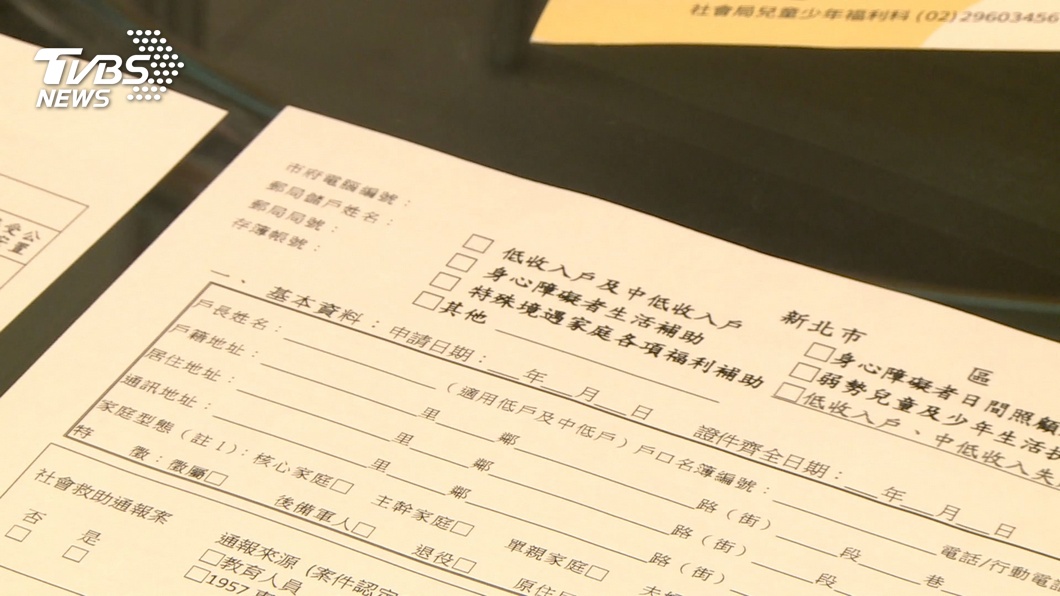 TVBS
NEWS
社會局兒童少年福利科 (02)29603456
受公
市府電腦編號：
郵局儲戶姓名：
郵局局號：
存簿帳號：
□ 低收入戶及中低收入戶
□ 身心障礙者生活補助
□ 特殊境遇家庭各項福利補助
□其他
新北市 區
□身心障礙者日間照顧
□弱勢兒童及少年生活扶
□低收入戶、中低收入失
一、基本資料：申請日期：__年__月__日 證件齊全日期：__年__月__日
戶長姓名：（適用低戶及中低戶）戶口名簿編號：
戶籍地址：里 鄰 路（街） 段 電話/行動電話
居住地址：里 鄰 路（街） 段 巷
通訊地址：里 鄰 路（街）
家庭型態（註1）：核心家庭□ 主幹家庭□ 單親家庭□
特 徵：徵屬□ 後備軍人□ 退役□ 原住
社會救助通報案
否 是
□ □
通報來源（案件認定
□教育人員
□1957